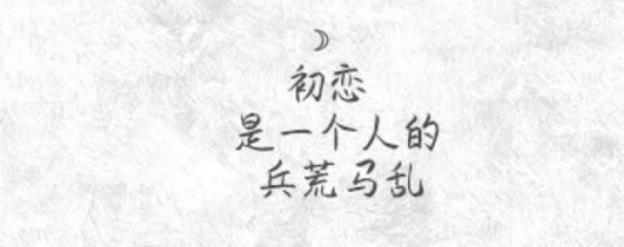 初恋
是一个人的
兵荒马乱